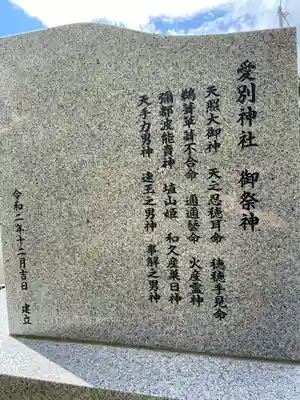 愛別神社 御祭神
天照大御神 天之忍穂耳命 穂穂手見命
鵜葺草葺不合命 邇邇藝命 火産霊神
彌都波能賣神 埴山姫 和久産巣日神
天手力男神 速玉之男神 事解之男神
令和二年十二月吉日 建立